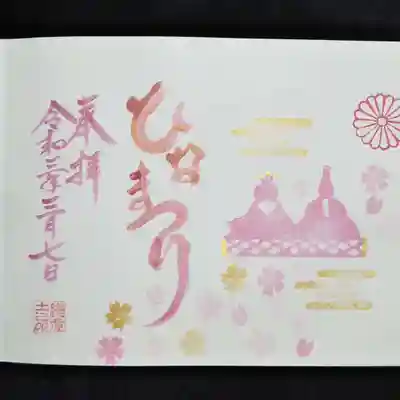 ひな
まつり
奉拝
令和三年三月七日